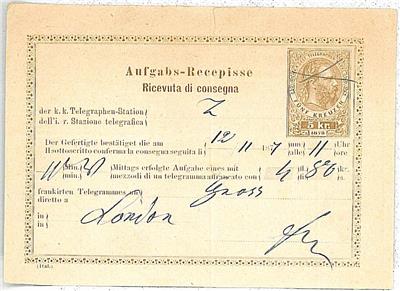 Aufgabs-Recepisse
Ricevuta di consegna
5 kr.
1873
der k. k. Telegraphen-Station
dell'i. r. Stazione telegrafica
Z
Der Gefertigte bestätiget die um
Il sottoscritto conferma la consegna seguita li
12 11 187 vom alle 11 Uhr
Ore
Min.
Min.
Mittags erfolgte Aufgabe eines mit
mezzodì di un telegramma affrancato con
4 50 kr.
s.
frankirten Telegrammes
Gross
in
in
London
(Ital.)